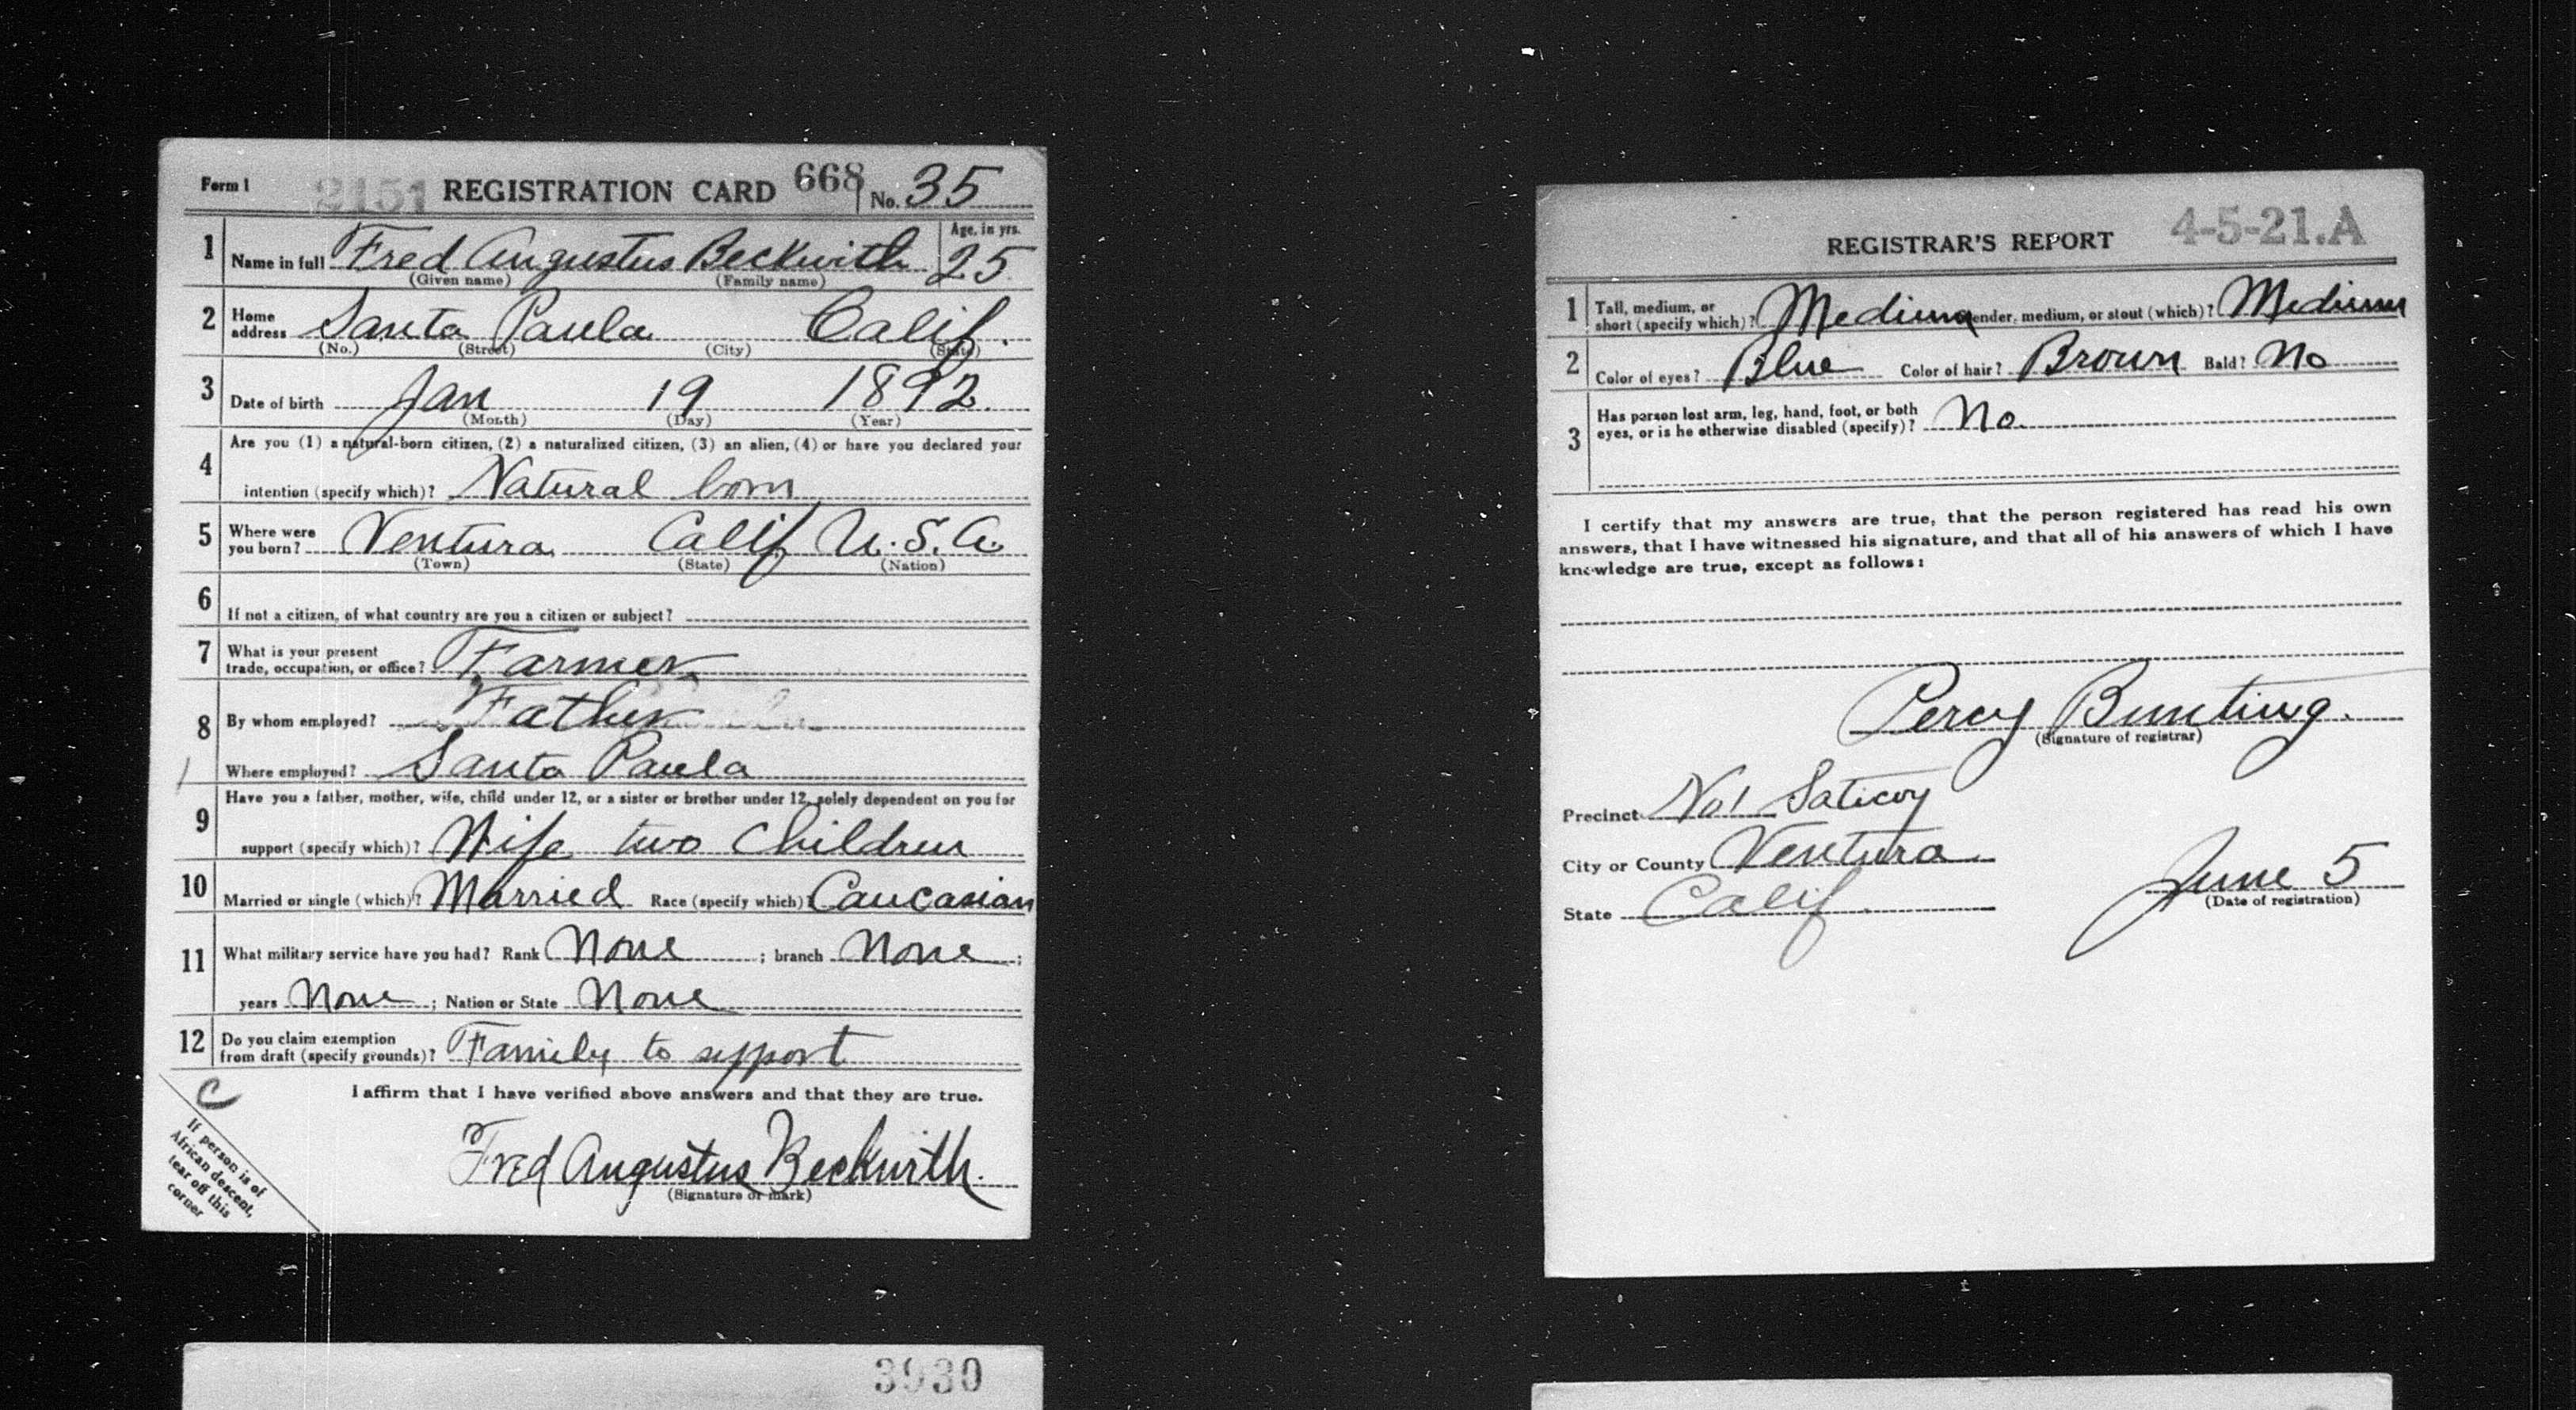 Form 1 2151 REGISTRATION CARD 668 No. 35
1 Name in full Fred Augustus Beckwith Age, in yrs. 25
(Given name) (Family name)
2 Home address Santa Paula Calif.
(No.) (Street) (City) (State)
3 Date of birth Jan 19 1892
(Month) (Day) (Year)
4 Are you (1) a natural-born citizen, (2) a naturalized citizen, (3) an alien, (4) or have you declared your
intention (specify which)? Natural born
5 Where were you born? Ventura Calif U.S.A.
(Town) (State) (Nation)
6 If not a citizen, of what country are you a citizen or subject?
7 What is your present trade, occupation, or office? Farmer
8 By whom employed? Father
Where employed? Santa Paula
9 Have you a father, mother, wife, child under 12, or a sister or brother under 12, solely dependent on you for
support (specify which)? Wife two Children
10 Married or single (which)? Married Race (specify which)? Caucasian
11 What military service have you had? Rank None ; branch None ;
years None ; Nation or State None
12 Do you claim exemption from draft (specify grounds)? Family to support
I affirm that I have verified above answers and that they are true.
C
Fred Augustus Beckwith.
(Signature or mark)
If person is of
African descent,
tear off this
corner
3930
REGISTRAR'S REPORT 4-5-21.A
1 Tall, medium, or short (specify which)? Medium ender, medium, or stout (which)? Medium
2 Color of eyes? Blue Color of hair? Brown Bald? No
3 Has person lost arm, leg, hand, foot, or both
eyes, or is he otherwise disabled (specify)? No.
I certify that my answers are true, that the person registered has read his own
answers, that I have witnessed his signature, and that all of his answers of which I have
knowledge are true, except as follows:
Percy Bunting.
(Signature of registrar)
Precinct No 1 Saticoy
City or County Ventura
State Calif.
June 5
(Date of registration)